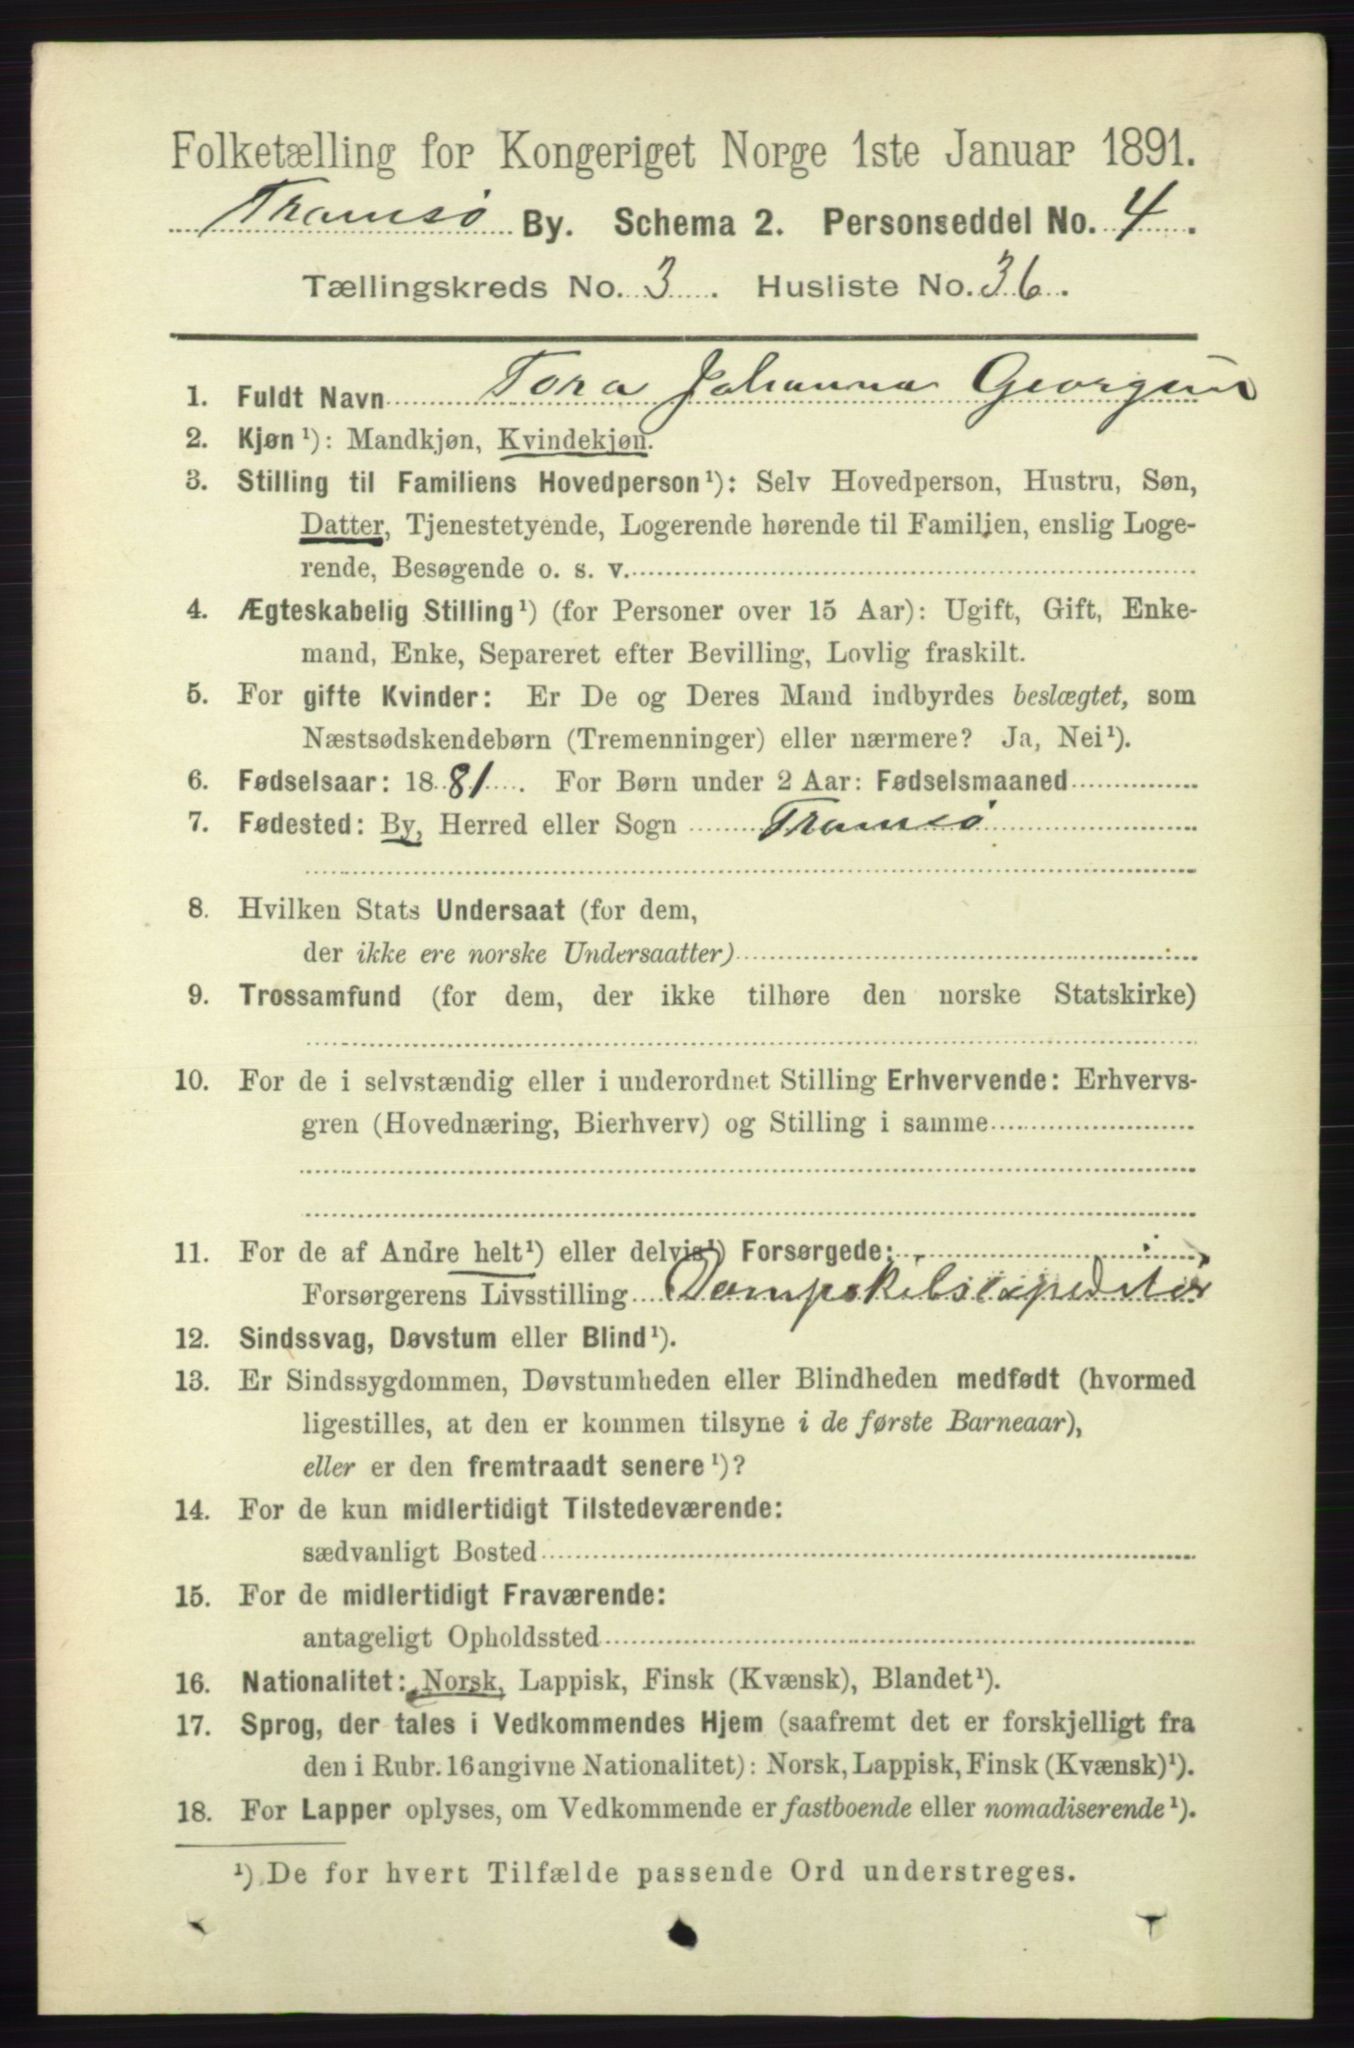 Folketælling for Kongeriget Norge 1ste Januar 1891.
Tromsø By. Schema 2. Personseddel No. 4.
Tællingskreds No. 3. Husliste No. 36.
1. Fuldt Navn Tora Johanna Georgsen
2. Kjøn¹): Mandkjøn, Kvindekjøn.
3. Stilling til Familiens Hovedperson¹): Selv Hovedperson, Hustru, Søn,
Datter, Tjenestetyende, Logerende hørende til Familien, enslig Loge-
rende, Besøgende o. s. v.
4. Ægteskabelig Stilling¹) (for Personer over 15 Aar): Ugift, Gift, Enke-
mand, Enke, Separeret efter Bevilling, Lovlig fraskilt.
5. For gifte Kvinder: Er De og Deres Mand indbyrdes beslægtet, som
Næstsødskendebørn (Tremenninger) eller nærmere? Ja, Nei¹).
6. Fødselsaar: 1881. For Børn under 2 Aar: Fødselsmaaned
7. Fødested: By, Herred eller Sogn Tromsø
8. Hvilken Stats Undersaat (for dem,
der ikke ere norske Undersaatter)
9. Trossamfund (for dem, der ikke tilhøre den norske Statskirke)
10. For de i selvstændig eller i underordnet Stilling Erhvervende: Erhvervs-
gren (Hovednæring, Bierhverv) og Stilling i samme
11. For de af Andre helt¹) eller delvis¹) Forsørgede:
Forsørgerens Livsstilling Dampskibsexpeditør
12. Sindssvag, Døvstum eller Blind¹).
13. Er Sindssygdommen, Døvstumheden eller Blindheden medfødt (hvormed
ligestilles, at den er kommen tilsyne i de første Barneaar),
eller er den fremtraadt senere¹)?
14. For de kun midlertidigt Tilstedeværende:
sædvanligt Bosted
15. For de midlertidigt Fraværende:
antageligt Opholdssted
16. Nationalitet: Norsk, Lappisk, Finsk (Kvænsk), Blandet¹).
17. Sprog, der tales i Vedkommendes Hjem (saafremt det er forskjelligt fra
den i Rubr. 16 angivne Nationalitet): Norsk, Lappisk, Finsk (Kvænsk)¹).
18. For Lapper oplyses, om Vedkommende er fastboende eller nomadiserende¹).
¹) De for hvert Tilfælde passende Ord understreges.